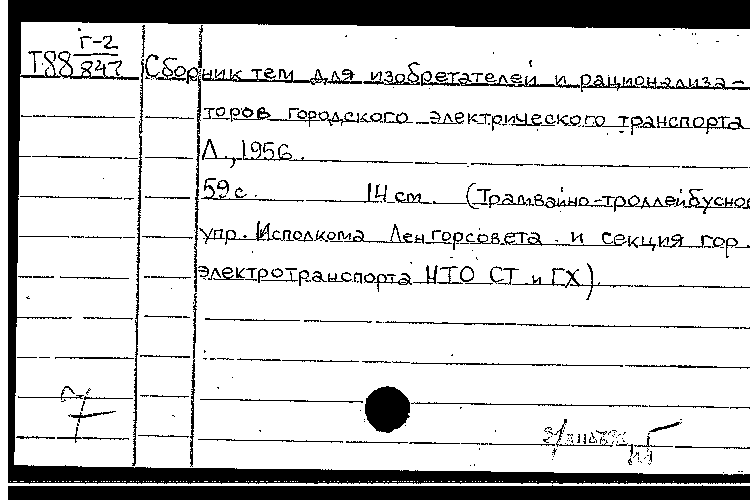 Г-2
Т88 847
Сборник тем для изобретателей и рационализа-
торов городского электрического транспорта
Л., 1956.
59 с. 14 см. (Трамвайно-троллейбусное
упр. Исполкома Ленгорсовета и секция гор.
электротранспорта НТО СТ и ГХ).